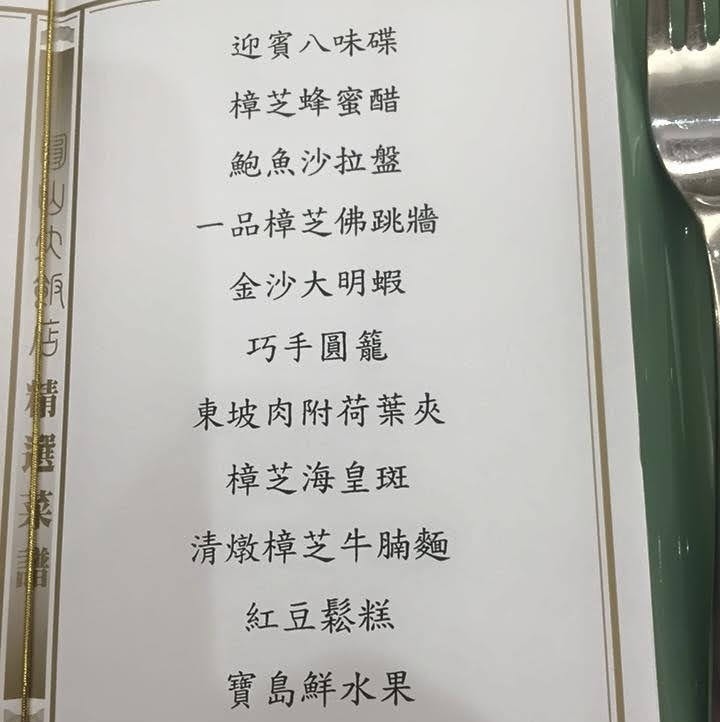 迎賓八味碟
樟芝蜂蜜醋
鮑魚沙拉盤
一品樟芝佛跳牆
金沙大明蝦
巧手圓籠
東坡肉附荷葉夾
樟芝海皇斑
清燉樟芝牛腩麵
紅豆鬆糕
寶島鮮水果
圓山大飯店 精選菜譜